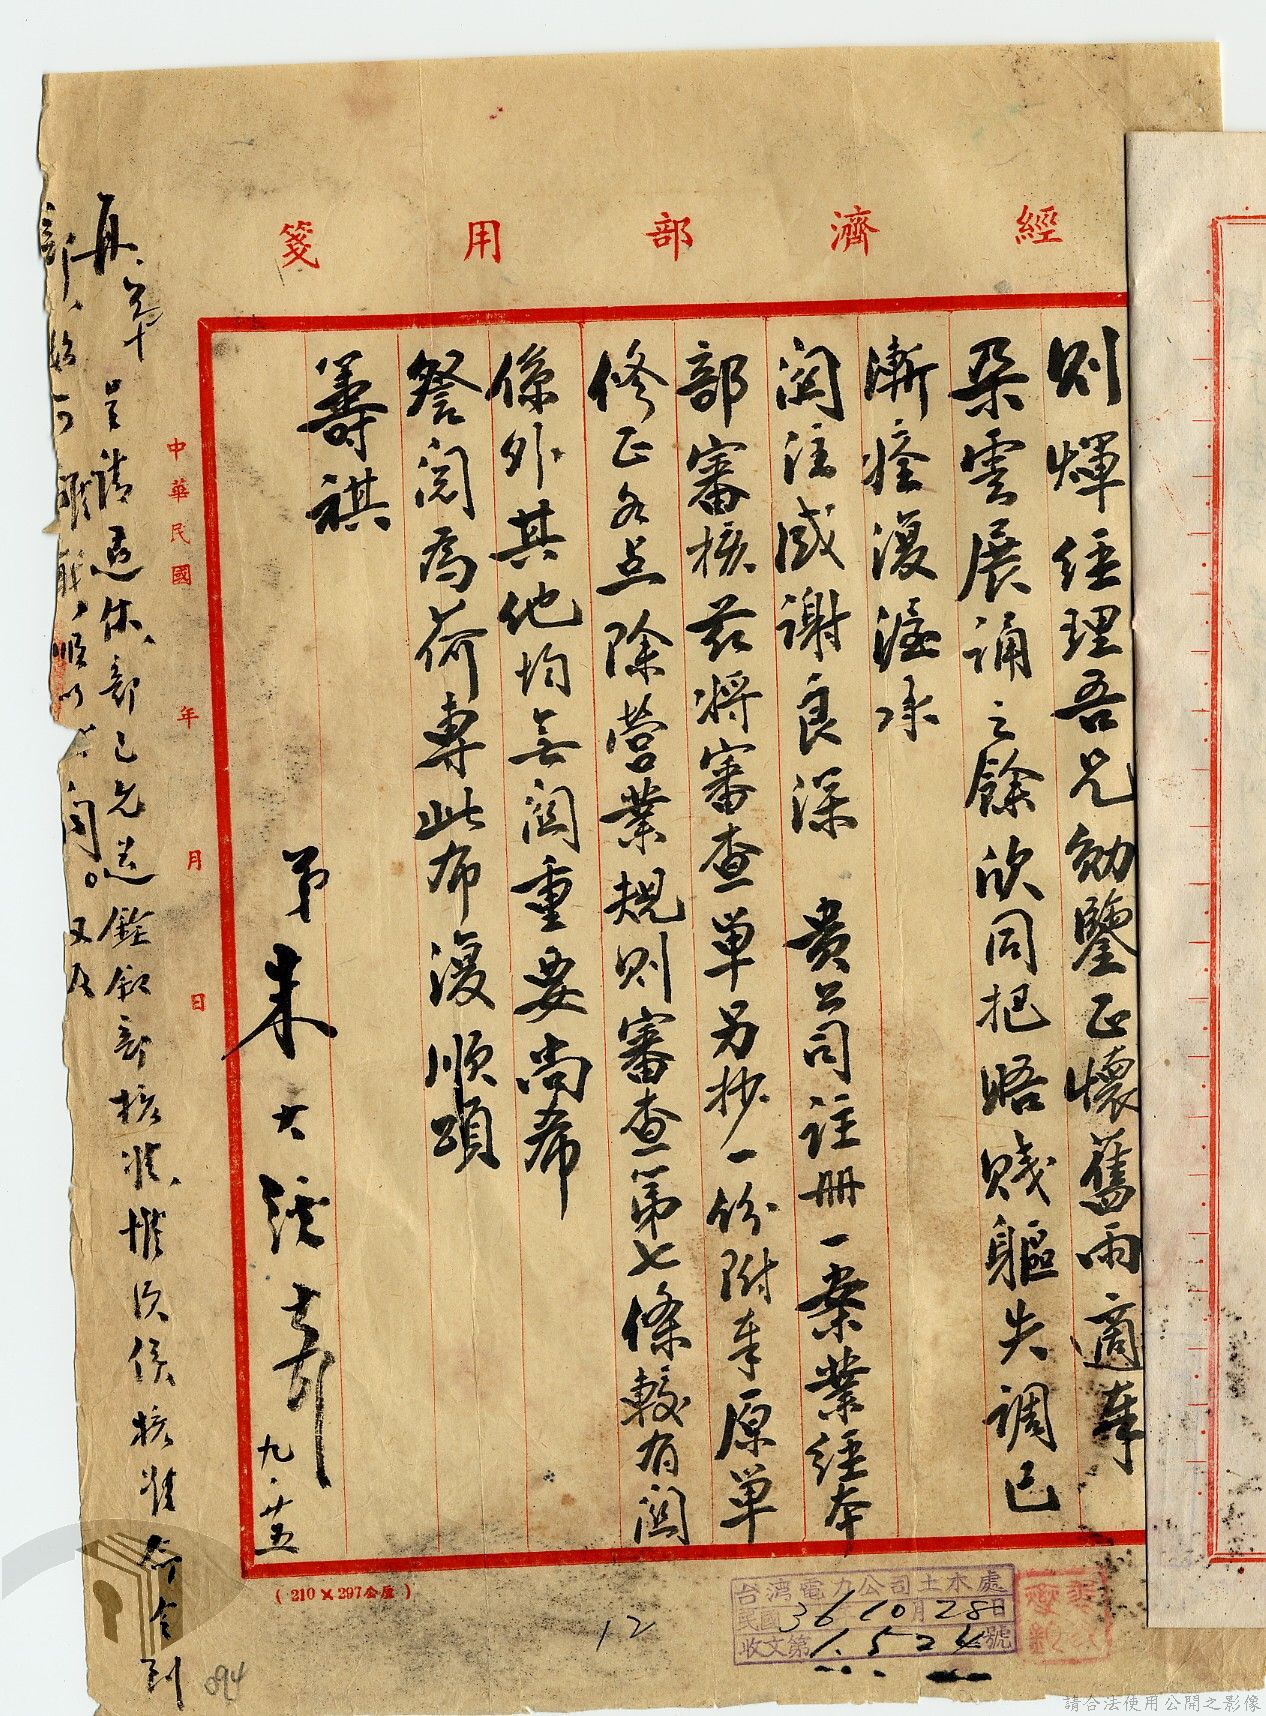 經濟部用箋
則煇經理吾兄勛鑒正懷舊雨適奉
朶雲展誦之餘欣同把晤賤軀失調已
漸痊復渥承
關注感謝良深 貴公司註冊一案業經本
部審核茲將審查單另抄一份附奉原單
修正各点除營業規則審查第七條較有關
係外其他均無關重要尚希
詧閱為荷專此布復順頌
籌祺
弟朱大經
九·廿五
中華民國 年 月 日
再
呈請退休、部已允送銓敘部核准、惟須俟核准命令到
部
順以 聞。又及
(210×297公厘)
台灣電力公司土木處
民國36年10月28日
收文第1524號
12
094
請合法使用公開之影像